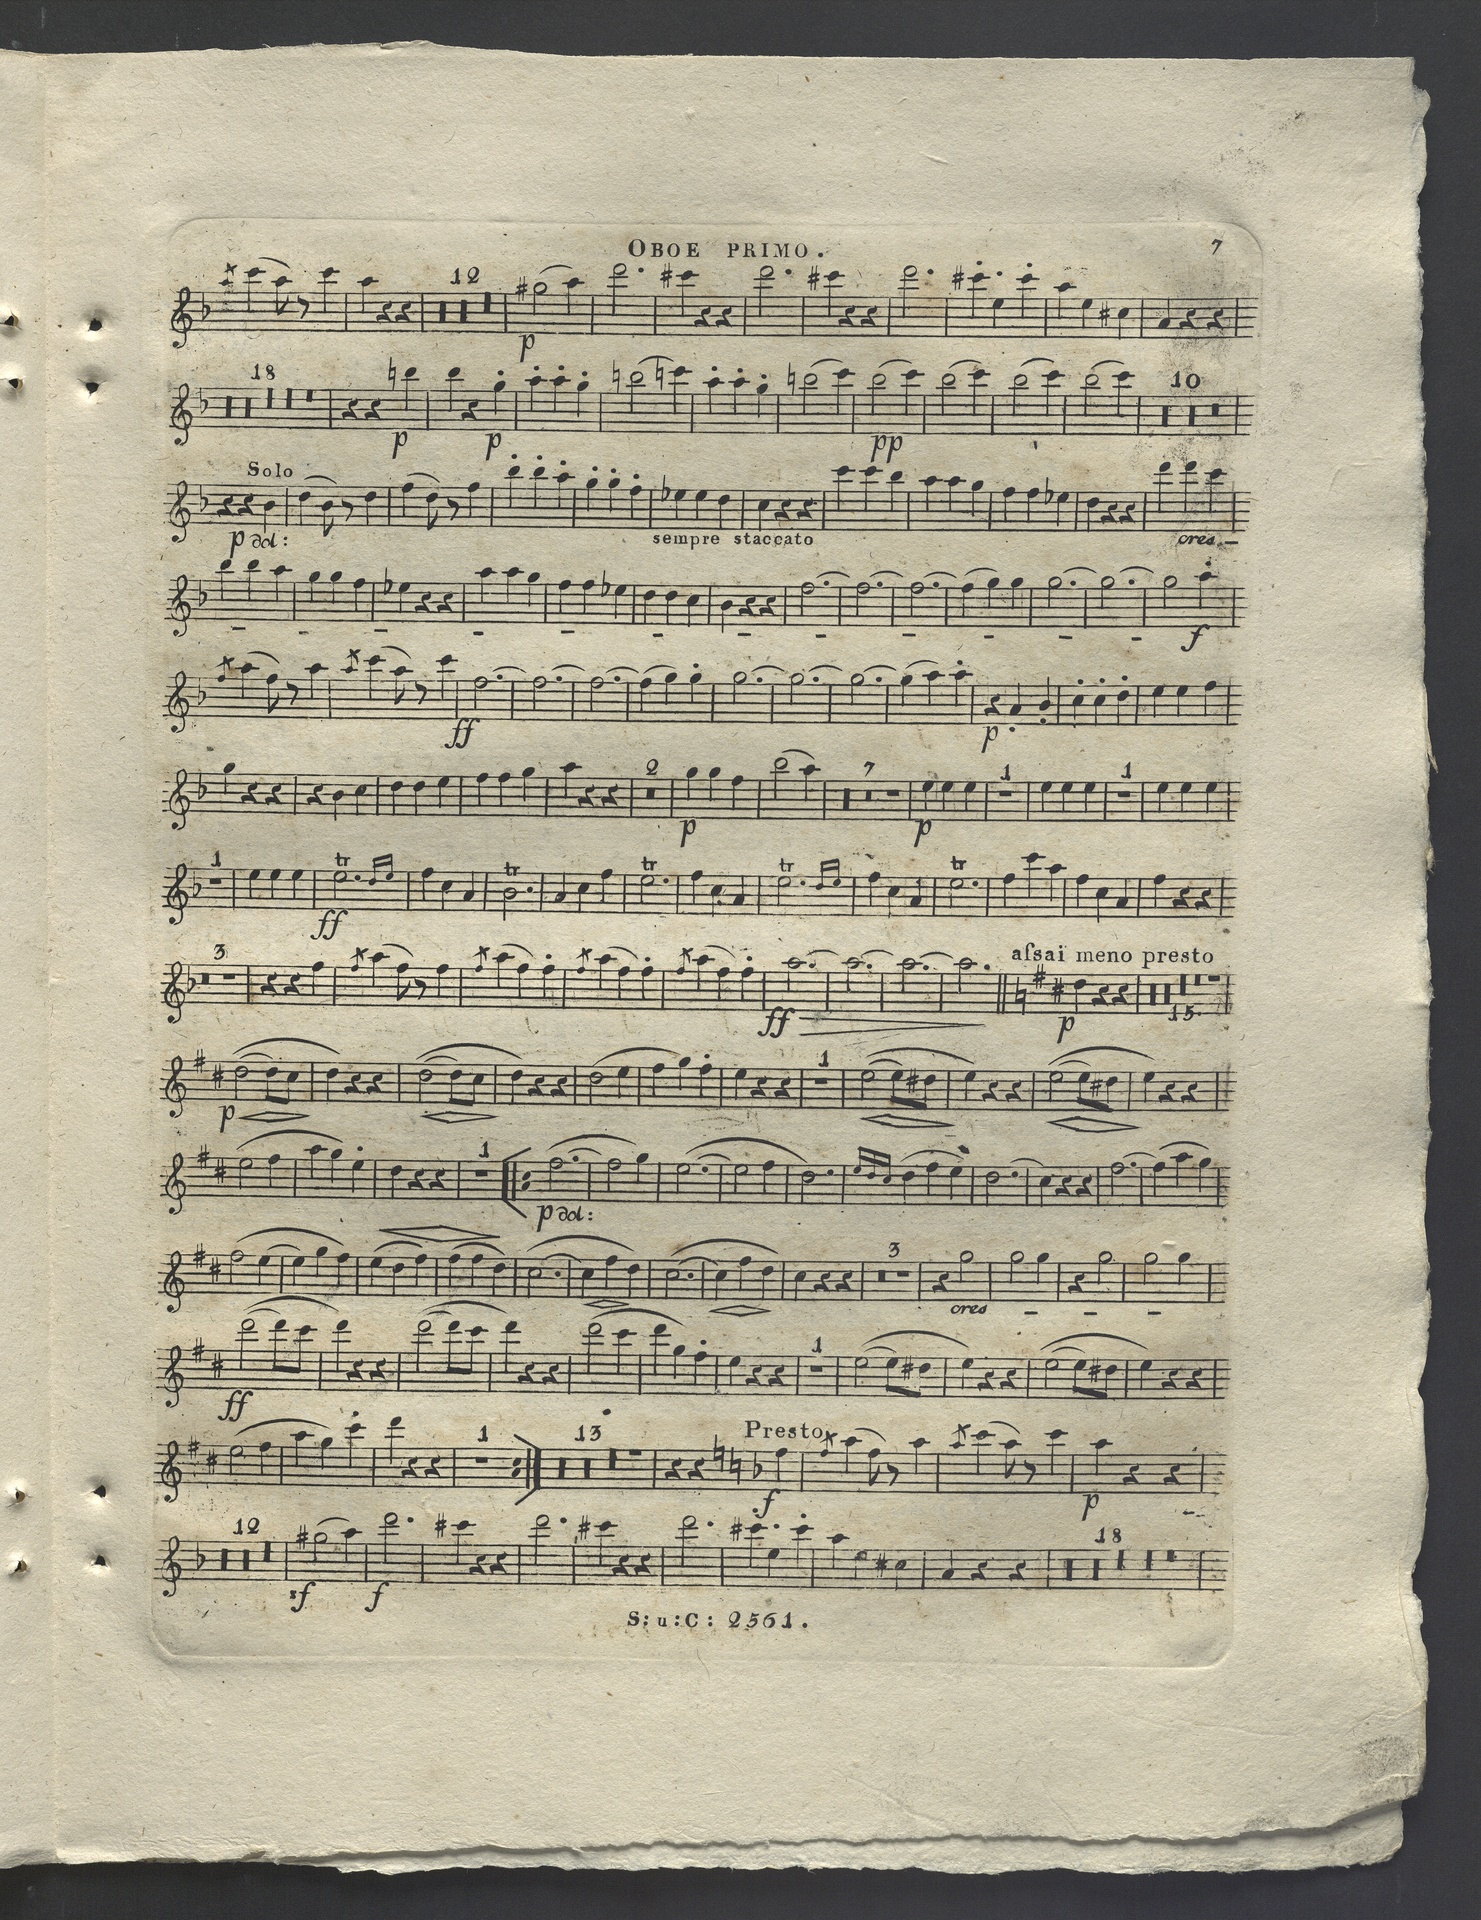 OBOE PRIMO. 7
12
p
18 10
p p pp
Solo
p dol: sempre staccato cres
f
ff p
2 7 1 1
p p
1 tr tr tr tr tr
ff
3 aſsai meno presto
ff p 15
1
p
1
p dol:
3
cres
1
ff
1 13 Presto
f p
12 18
sf f
S:u:C: 2561.